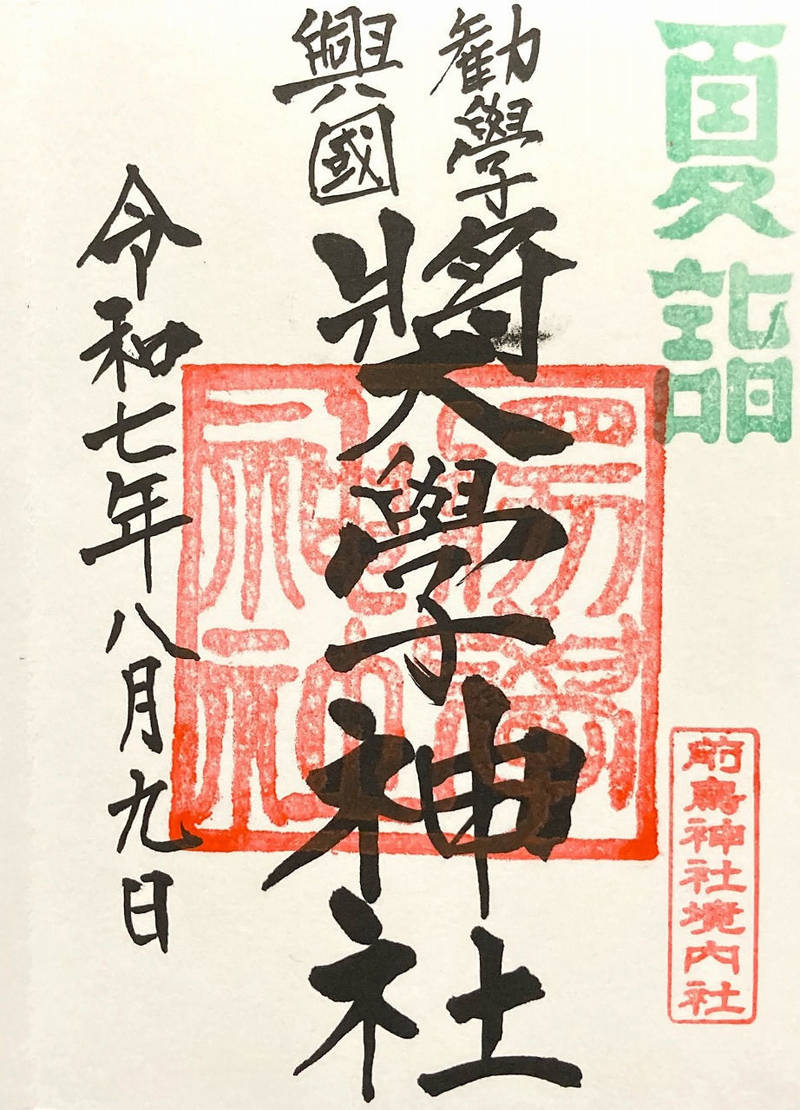 夏詣
勸學
興國
奬學神社
令和七年八月九日
前鳥神社境内社